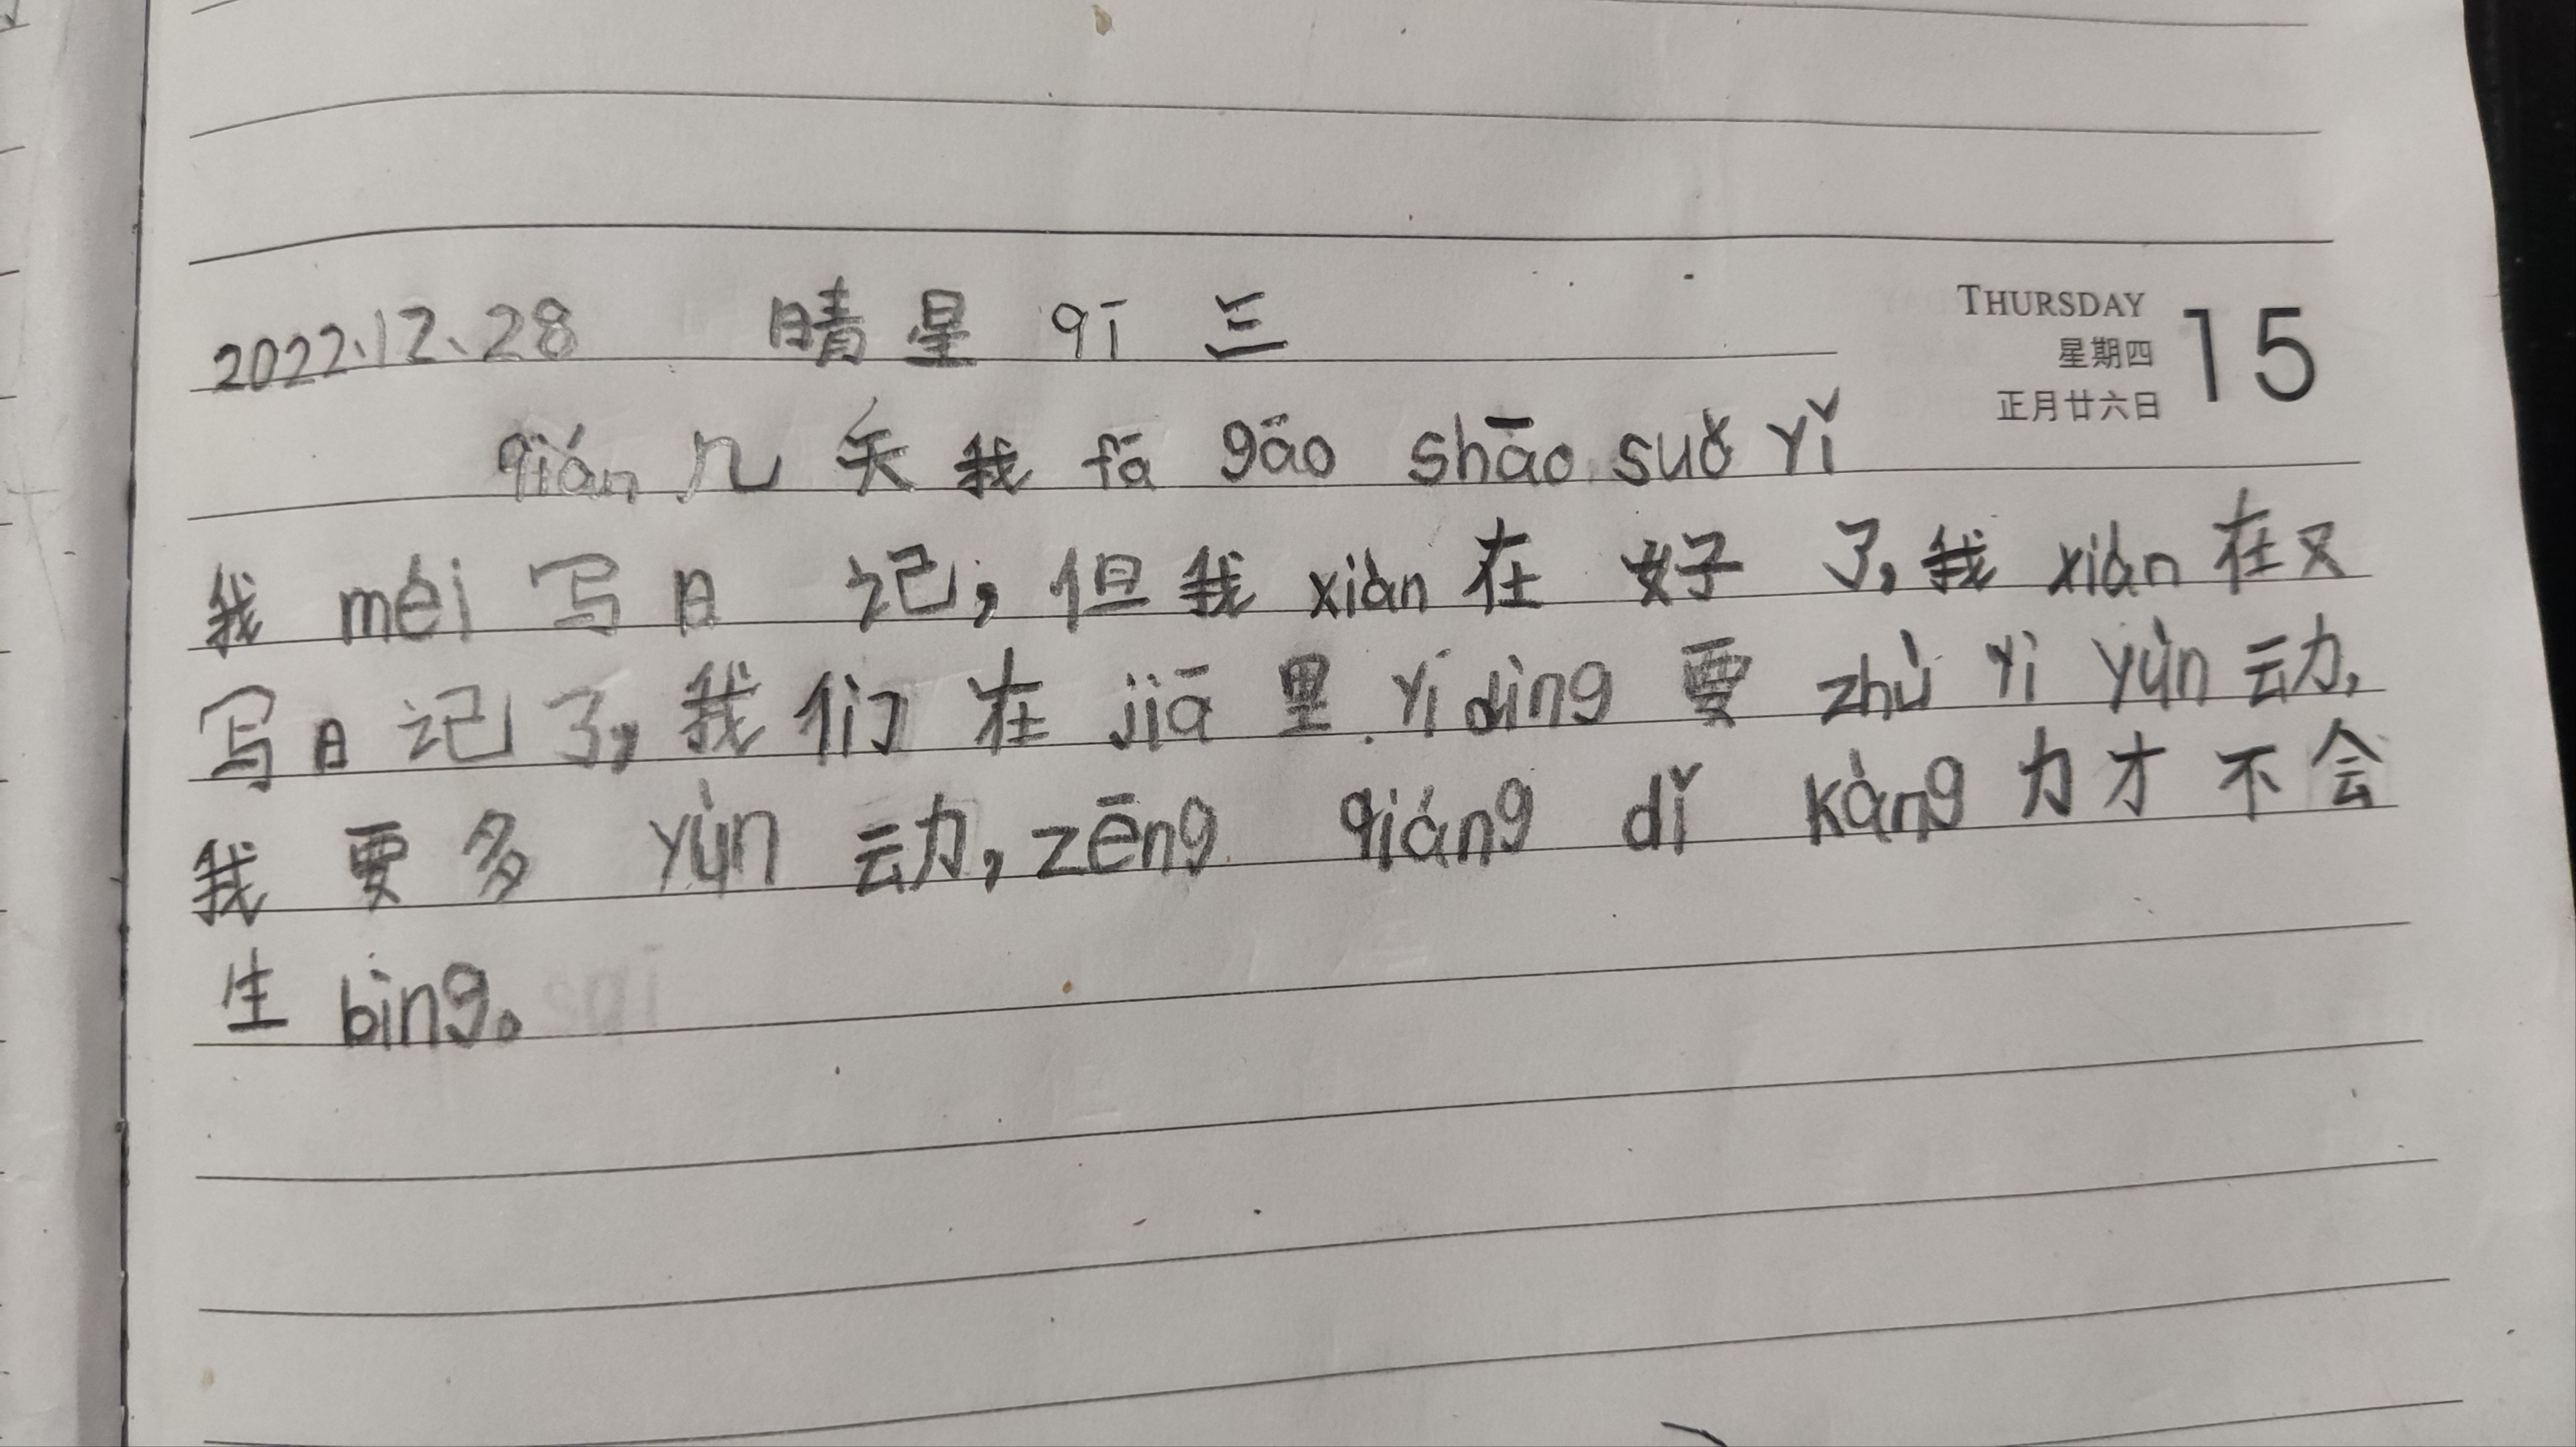 2022、12、28 晴 星 qī 三
THURSDAY
星期四
正月廿六日
15
qián 几 天 我 fā gāo shāo suǒ yǐ
我 méi 写 日 记，但 我 xiàn 在 好 了，我 xiàn 在 又
写 日 记 了，我 们 在 jiā 里 yí dìng 要 zhù yì yùn 动，
我 要 多 yùn 动，zēng qiáng dǐ kàng 力 才 不 会
生 bìng。